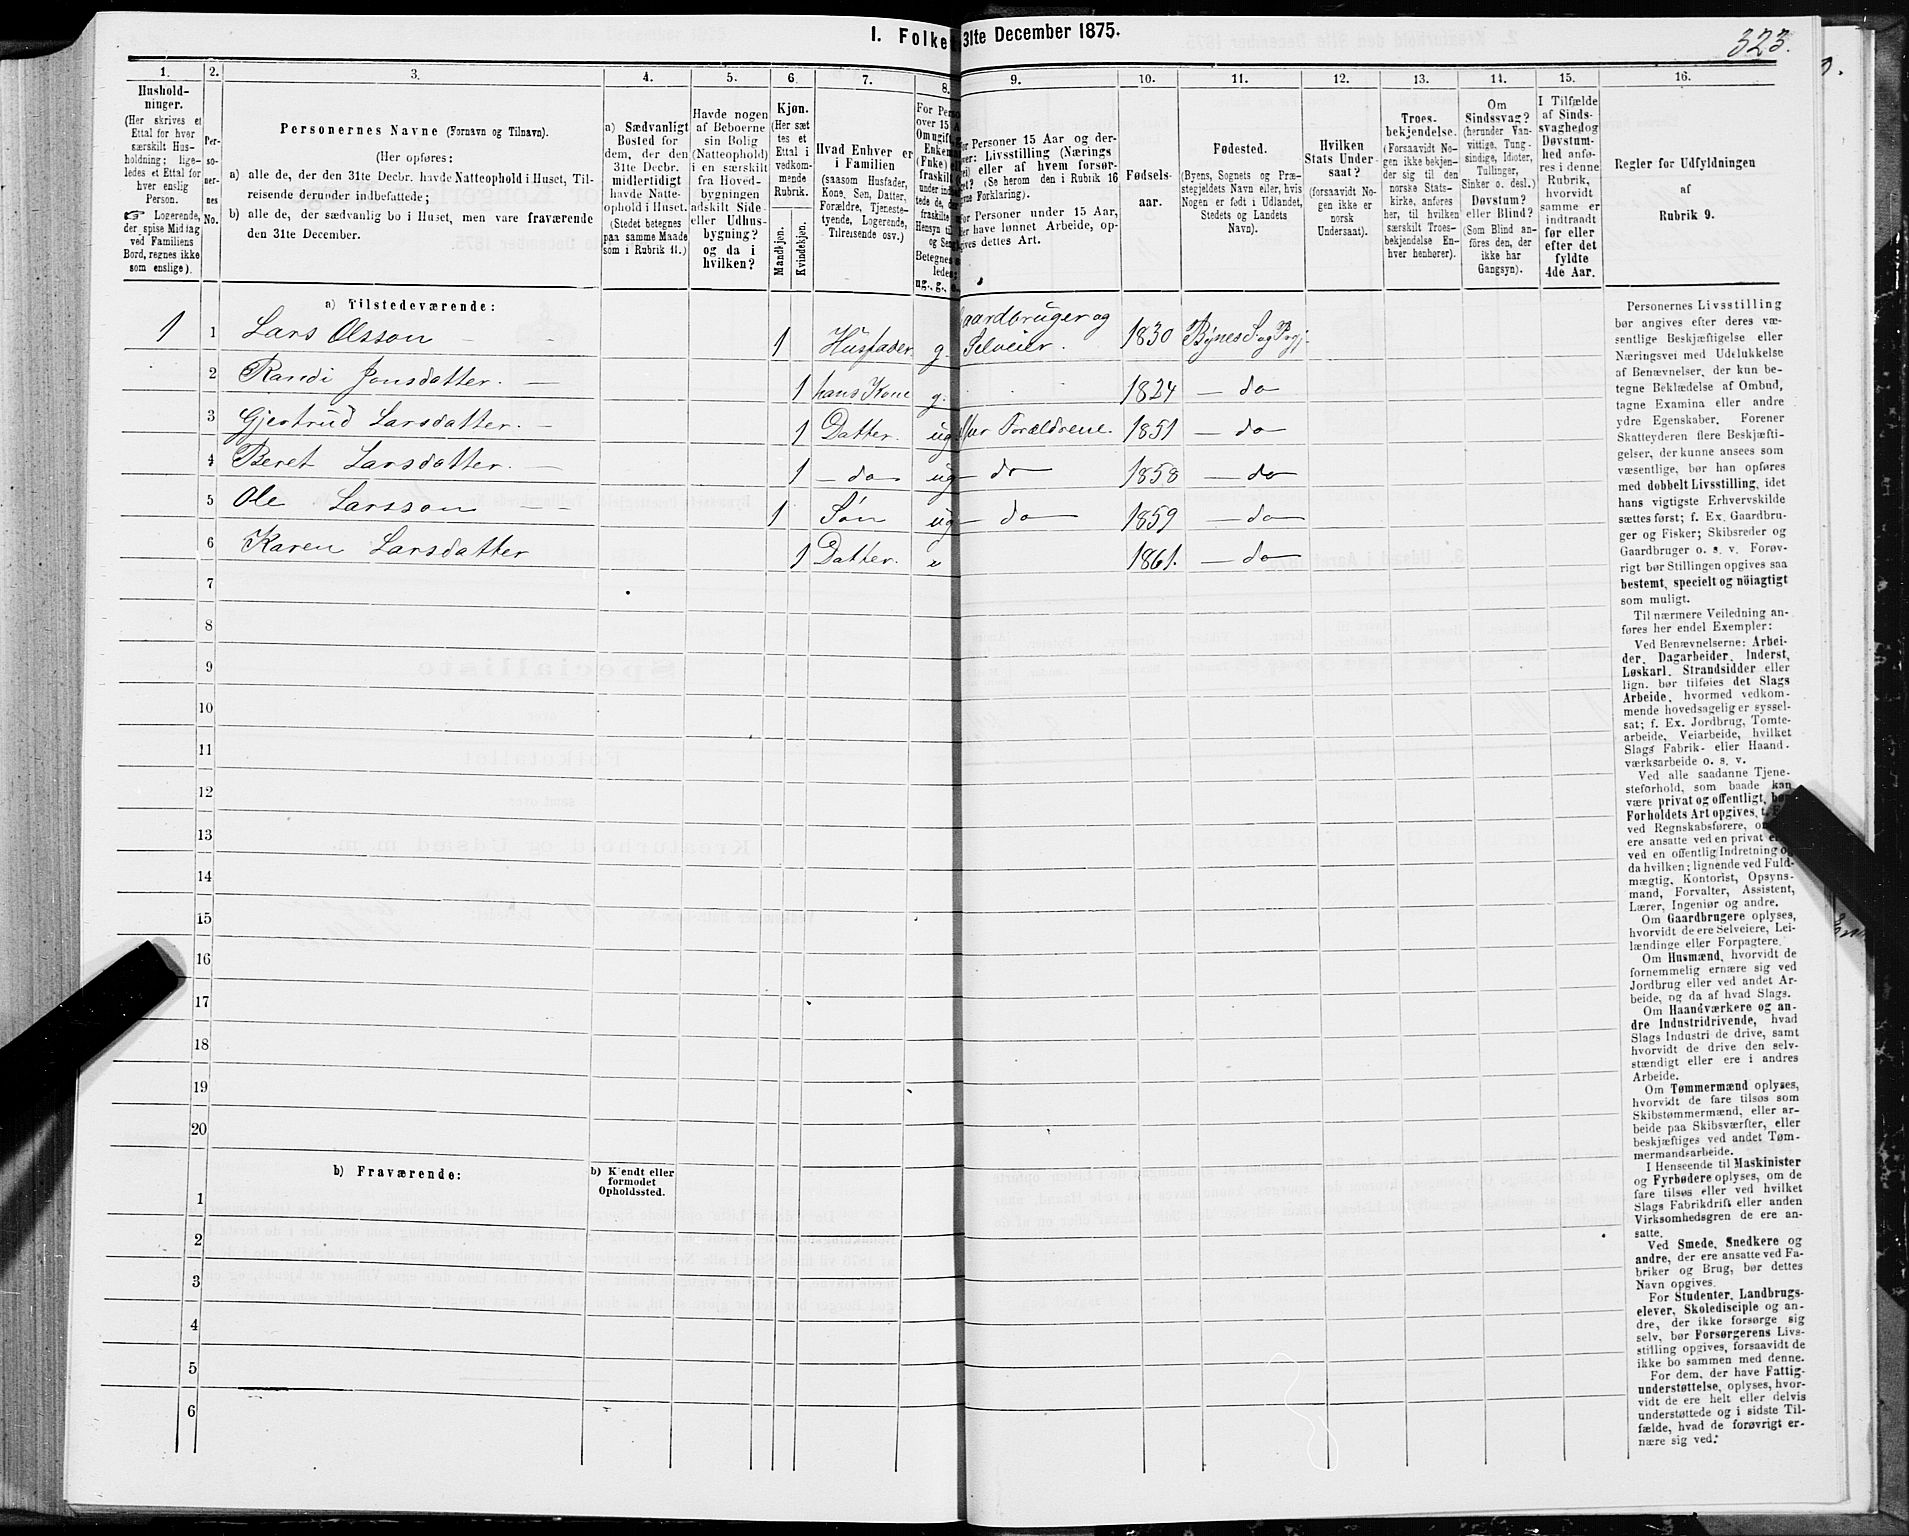 I. Folke 31te December 1875.
323.
1. 2. 3. 4. 5. 6. 7. 8. 9. 10. 11. 12. 13. 14. 15. 16.
Hushold-
ninger.
(Her skrives et
Ettal for hver
særskilt Hus-
holdning; lige-
ledes et Ettal for
hver enslig
Person.
☞ Logerende,
der spise Middag
ved Familiens
Bord, regnes ikke
som enslige).
Per-
so-
ner-
nes
No.
Personernes Navne (Fornavn og Tilnavn).
(Her opføres:
a) alle de, der den 31te Decbr. havde Natteophold i Huset, Til-
reisende derunder indbefattede;
b) alle de, der sædvanlig bo i Huset, men vare fraværende
den 31te December.
a) Sædvanligt
Bosted for
dem, der den
31te Decbr.
midlertidigt
havde Natte-
ophold i Huset.
(Stedet betegnes
paa samme Maade
som i Rubrik 11.)
Havde nogen
af Beboerne
sin Bolig
(Natteophold)
i en særskilt
fra Hoved-
bygningen
adskilt Side-
eller Udhus-
bygning?
og da i
hvilken?
Kjøn.
(Her sæt
tes et
Ettal i
vedkom-
mende
Rubrik.
Mandkjøn.
Kvindekjøn.
Hvad Enhver er
i Familien
(saasom Husfader,
Kone, Søn, Datter,
Forældre, Tjeneste-
tyende, Logerende,
Tilreisende osv.)
For Pers
over 15 A
Om ugift
Enkem
(Fnke)
fraskilt
Hensyn til
Betegnes
ledes;
ug., g.,
for Personer 15 Aar og der-
over: Livsstilling (Nærings
eller af hvem forsør-
get? (Se herom den i Rubrik 16
Forklaring).
For Personer under 15 Aar,
der have lønnet Arbeide, op-
gives dettes Art.
Fødsels-
aar.
Fødested.
(Byens, Sognets og Præ-
stegjeldets Navn eller, hvis
Nogen er født i Udlandet,
Stedets og Landets
Navn).
Hvilken
Stats Under-
saat?
(forsaavidt No-
gen ikke er
norsk
Undersaat).
Troes-
bekjendelse.
(Forsaavidt No-
gen ikke bekjen-
der sig til den
norske Stats-
kirke, anføres
her, til hvilken
særskilt Troes-
bekjendelse En-
hver henhører).
Om
Sindssvag?
(herunder Van-
vittige, Tung-
sindige, Idioter,
Tullinger,
Sinker o. desl.)?
Døvstum?
eller Blind?
(Som Blind an-
føres den, der
ikke har
Gangsyn).
I Tilfælde
af Sinds-
svaghed og
Døvstum-
hed anfø-
res i denne
Rubrik,
hvorvidt
samme er
indtraadt
før eller
efter det
fyldte
4de Aar.
Regler for Udfyldningen
af
Rubrik 9.
a) Tilstedeværende:
1 1 Lars Olsson 1 Husfader g. Gaardbruger og Selveier. 1830 Bynes S. og Prgj.
2 Randi Jonsdatter. — 1 hans Kone g. 1824 — do
3 Gjertrud Larsdatter. — 1 Datter. ug Forældrene. 1851 — do
4 Beret Larsdatter. — 1 — do ug — do 1858 — do
5 Ole Larsson — 1 Søn ug — do 1859 — do
6 Karen Larsdatter 1 Datter. 1861. — do
7
8
9
10
11
12
13
14
15
16
17
18
19
20
b) Fraværende:
b) Kjendt eller
formodet
Opholdssted.
1
2
3
4
5
6
Personernes Livsstilling
bør angives efter deres væ-
sentlige Beskjæftigelse eller
Næringsvei med Udelukkelse
af Benævnelser, der kun be-
tegne Beklædelse af Ombud,
tagne Examina eller andre
ydre Egenskaber. Forener
Skatteyderen flere Beskjæfti-
gelser, der kunne ansees som
væsentlige, bør han opføres
med dobbelt Livsstilling, idet
hans vigtigste Erhvervskilde
sættes først; f. Ex. Gaardbru-
ger og Fisker; Skibsreder og
Gaardbruger o. s. v. Forøv-
rigt bør Stillingen opgives saa
bestemt, specielt og nöiagtigt
som muligt.
Til nærmere Veiledning an-
føres her endel Exempler:
Ved Benævnelserne: Arbei-
der, Dagarbeider, Inderst,
Løskarl, Strandsidder eller
lign. bør tilføies det Slags
Arbeide, hvormed vedkom-
mende hovedsagelig er syssel-
sat; f. Ex. Jordbrug, Tomte-
arbeide, Veiarbeide, hvilket
Slags Fabrik- eller Haand-
værksarbeide o. s. v.
Ved alle saadanne Tjene-
steforhold, som baade kan
være privat og offentligt, bør
Forholdets Art opgives,
ved Regnskabsførere,
ere ansatte ved en privat
ved en offentlig Indretning og
da hvilken; lignende ved Fuld-
mægtig, Kontorist, Opsyns-
mand, Forvalter, Assistent,
Lærer, Ingeniør og andre.
Om Gaardbrugere oplyses,
hvorvidt de ere Selveiere, Lei-
lændinge eller Forpagtere.
Om Husmænd, hvorvidt de
fornemmelig ernære sig ved
Jordbrug eller ved andet Ar-
beide, og da af hvad Slags.
Om Haandværkere og an-
dre Industridrivende, hvad
Slags Industri de drive, samt
hvorvidt de drive den selv-
stændigt eller ere i andres
Arbeide.
Om Tømmermænd oplyses,
hvorvidt de fare tilsøs som
Skibstømmermænd, eller ar-
beide paa Skibsværfter, eller
beskjæftiges ved andet Tøm-
mermandsarbeide.
I Henseende til Maskinister
og Fyrbødere oplyses, om de
fare tilsøs eller ved hvilket
Slags Fabrikdrift eller anden
Virksomhedsgren de ere an-
satte.
Ved Smede, Snedkere og
andre, der ere ansatte ved Fa-
briker og Brug, bør dettes
Navn opgives.
For Studenter, Landbrugs-
elever, Skoledisciple og an-
dre, der ikke forsørge sig
selv, bør Forsørgerens Livs-
stilling opgives, forsaavidt de
ikke bo sammen med denne.
For dem, der have Fattig-
understøttelse, oplyses, hvor-
vidt de ere helt eller delvis
understøttede og i sidste Til-
fælde, hvad de forøvrigt er-
nære sig ved.